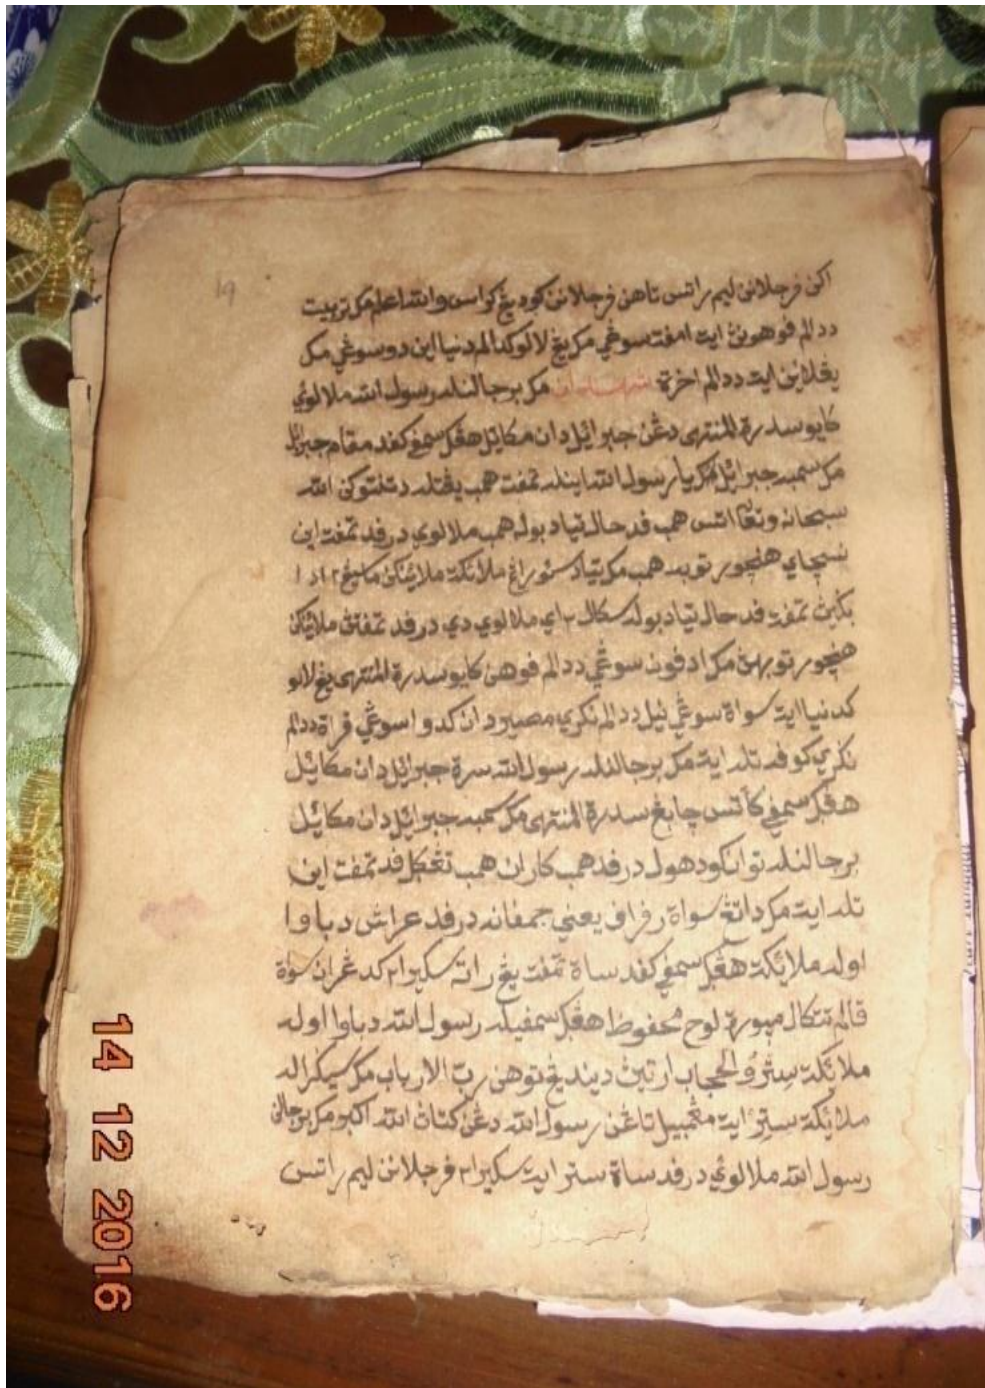 19
اكن فرجلانن ليم راتس تاهن فرجلانن كود يڠ كراس والله اعلم مك تربيت
ددالم فوهونڽ ايت امفت سوڠي مك يڠ لالو كدالم دنيا اين دو سوڠي مك
يڠلاين ايت ددالم اخرة مك برجالنله رسول الله ملالوي
كايو سدرة المنتهى دڠن جبرائيل دان مكائيل هڠڬ سمڤي كفد مقام جبرائيل
مك سمبه جبرائيل يا رسول الله اينله تمفت همب يڠتله دتنتوكن الله
سبحانه وتعالى اتس همب فد حال تياد بوله همب ملالوي درفد تمفت اين
نسچاي هنچور توبه همب مك تياد سئورڠ ملائكة
تمفت فد حال تياد بوله سكال٢ اي ملالوي دي درفد تمفتڽ
هنچور توبهڽ مك ادفون سوڠي ددالم فوهن كايو سدرة المنتهى يڠ لالو
كدنيا ايت سواة سوڠي نيل ددالم نكري مصير دان كدوا سوڠي فراة ددالم
نكري كوفه تله ايت مك برجالنله رسول الله سرة جبرائيل دان مكائيل
هڠڬ سمڤي كأتس چابڠ سدرة المنتهى مك سمبه جبرائيل دان مكائيل
برجالنله توانكو دهول درفد همب كارن همب تڠڬل فد تمفت اين
تله ايت مك داتڠ سواة رفراف يعني جمفانه درفد عراش دباوا
اوله ملائكة هڠڬ سمڤي كفد ساة تمفت يڠ راته سكيرا٢ كدڠران سواة
قالم تتكال مپورة لوح محفوظ هڠڬ سمفيله رسول الله دباوا اوله
ملائكة سترو الحجاب ارتيڽ ديندڠ توهن ربّ الارباب مك سيكراله
ملائكة ستر ايت مڠمبيل تاڠن رسول الله دڠن كتاڽ الله اكبر مك برجالن
رسول الله ملالوي درفد ساة ستر ايت سكيرا٢ فرجلانن ليم راتس
14 12 2016